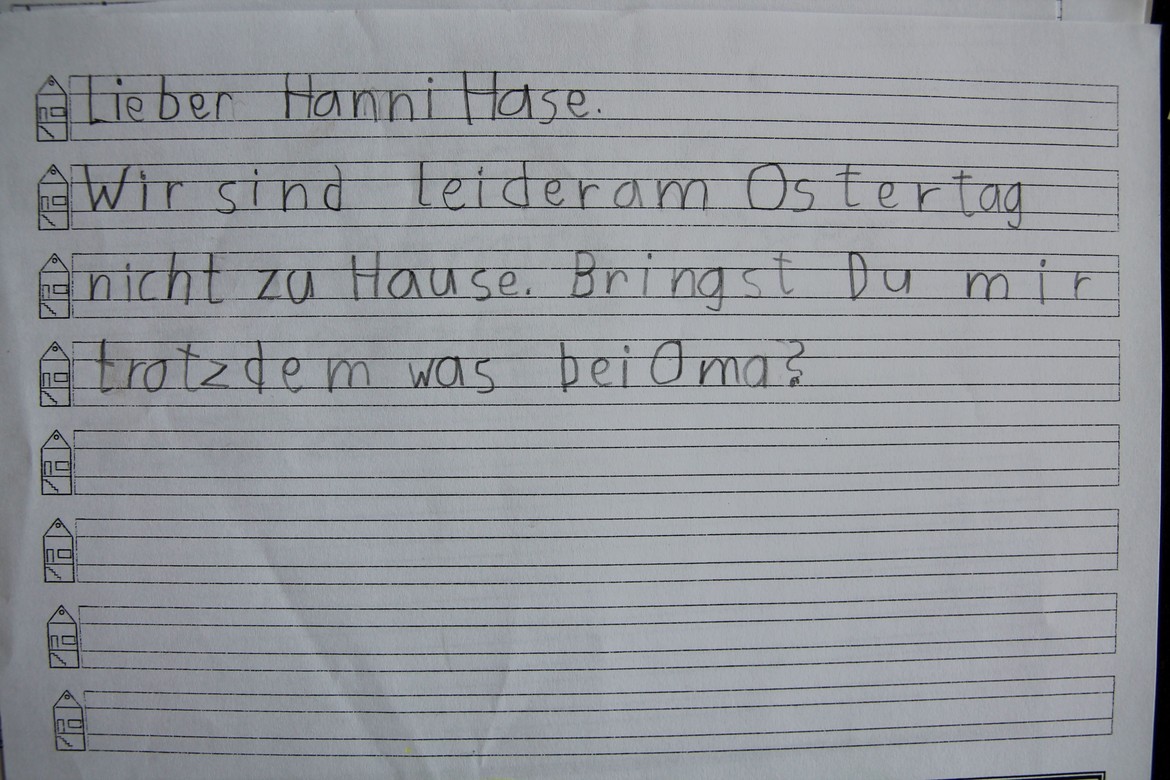 Lieber Hanni Hase.
Wir sind leider am Ostertag
nicht zu Hause. Bringst Du mir
trotzdem was bei Oma?